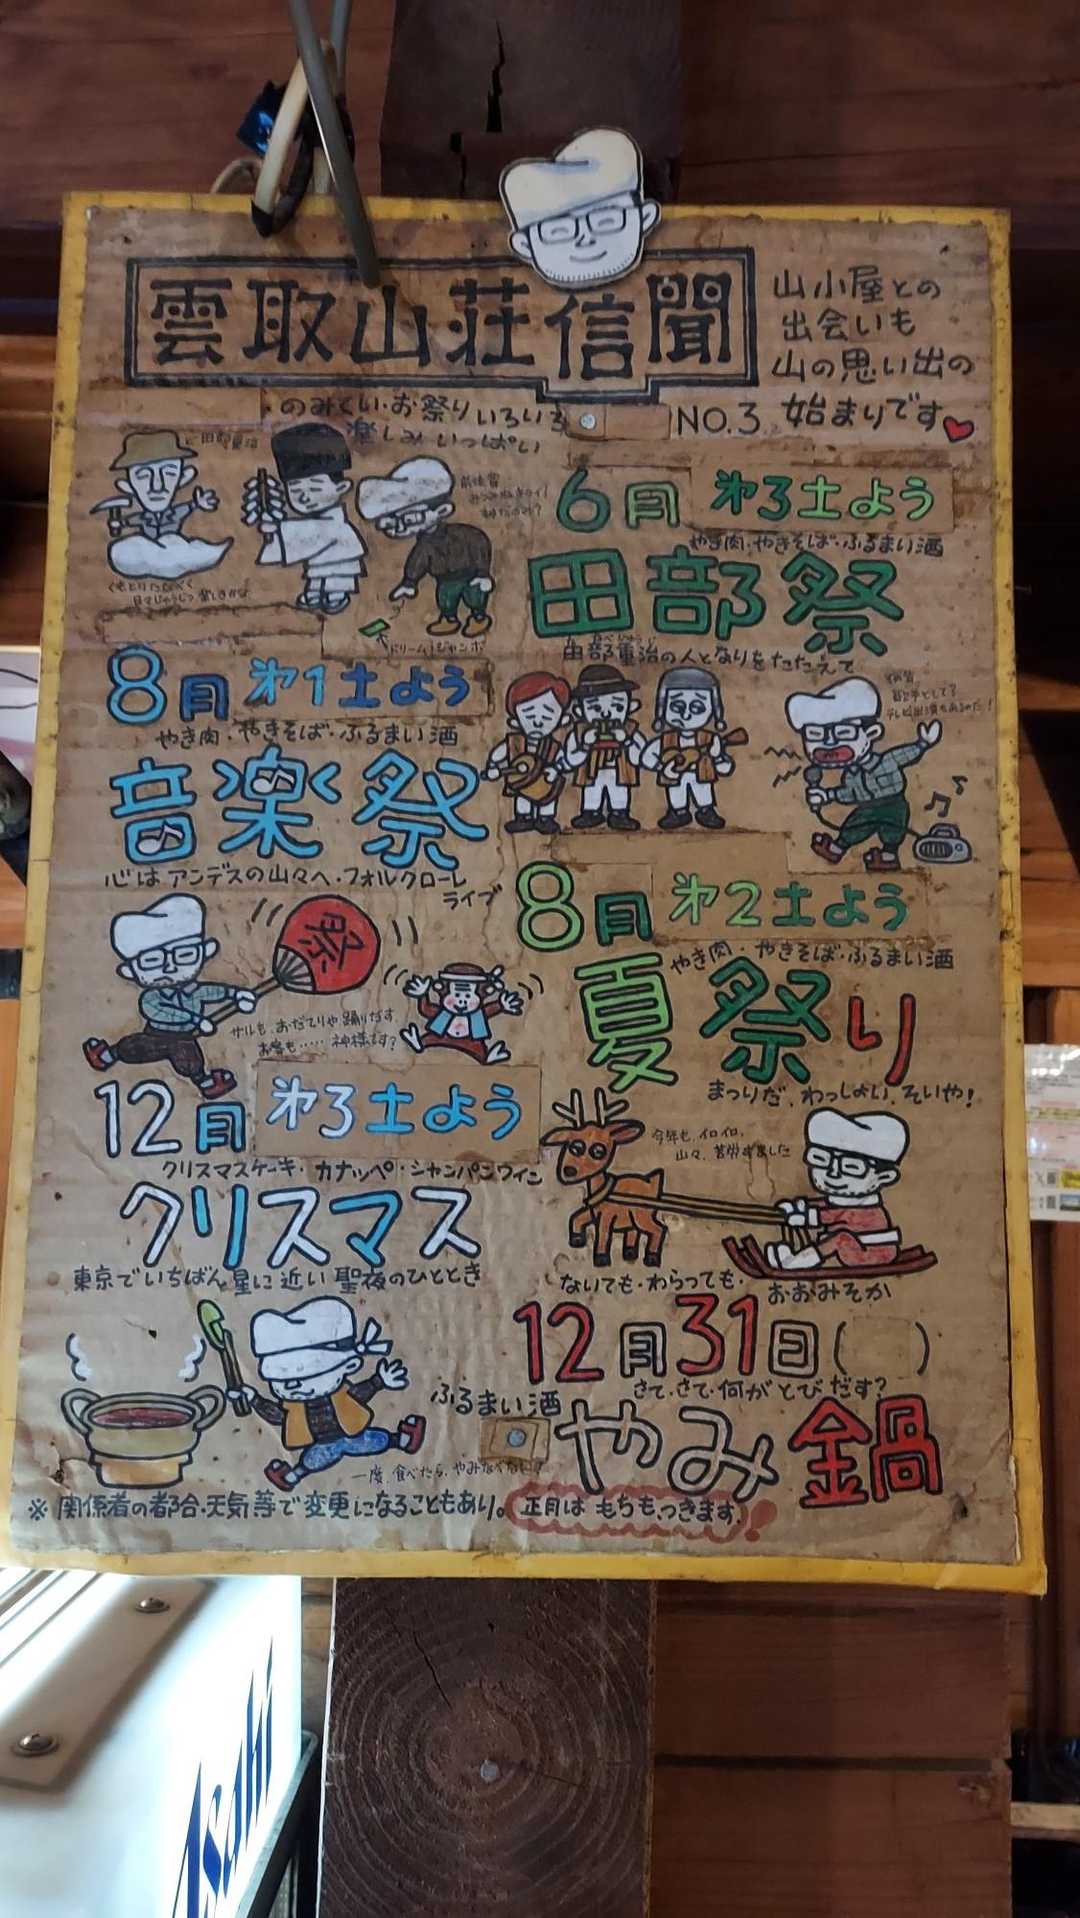 雲取山荘信聞
山小屋との
出会いも
山の思い出の
始まりです
NO.3
のみくい・お祭りいろいろ
楽しみいっぱい
田部重治
6月 第3土よう
やき肉・やきそば・ふるまい酒
田部祭
田部重治の人となりをたたえて
ドリームジャンボ
8月 第1土よう
やき肉・やきそば・ふるまい酒
音楽祭
心はアンデスの山々へ・フォルクローレ
ライブ
8月 第2土よう
やき肉・やきそば・ふるまい酒
夏祭り
まつりだ、わっしょい、そいや!
祭
サルも、おだてりゃ踊りだす、
お客も……神様です?
12月 第3土よう
クリスマスケーキ・カナッペ・シャンパンワイン
クリスマス
東京でいちばん星に近い聖夜のひととき
今年も、イロイロ、
山々、苦労すました
ないても・わらっても・おおみそか
12月31日( )
さて・さて・何がとびだす?
ふるまい酒
やみ鍋
一度、食べたら、やみなべ
※関係者の都合・天気等で変更になることもあり。正月はもちもつきます!
Asahi